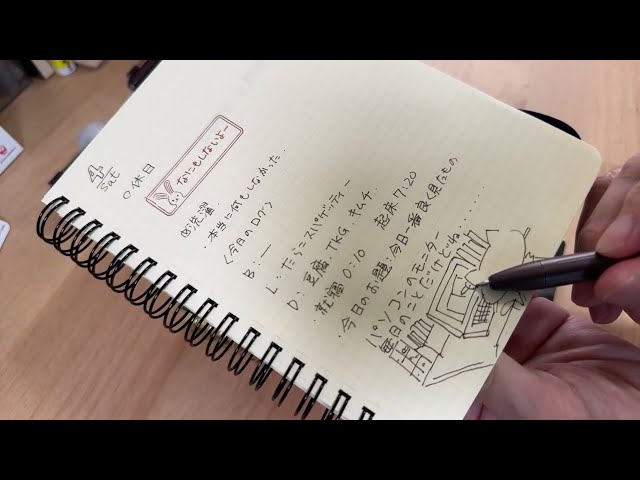 4
Sat
○休日
なにもしないよー
洗濯
・本当に何もしなかった.
〈今日のログ〉
B: ―
L: たらこスパゲッティー
D: 豆腐. TKG. キムチ.
・就寝 0:10 起床 7:20
・今日のお題: 今日一番良く見たもの
パソコンのモニター
毎日のことだけどね......